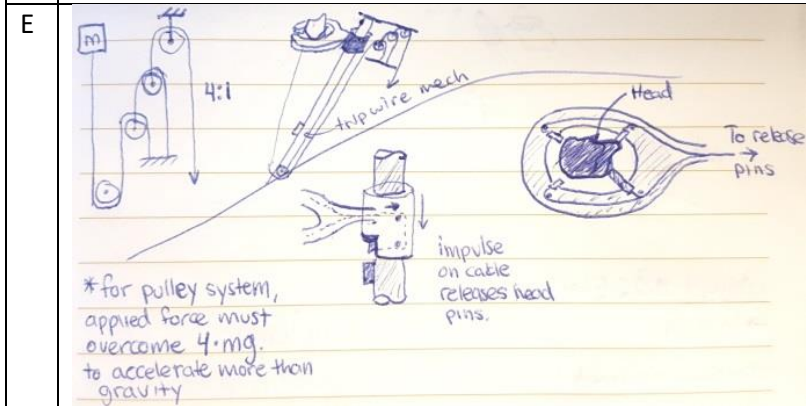 E
m
4:1
tripwire mech
Head
To release
pins
impulse
on cable
releases head
pins.
*for pulley system,
applied force must
overcome 4·mg.
to accelerate more than
gravity